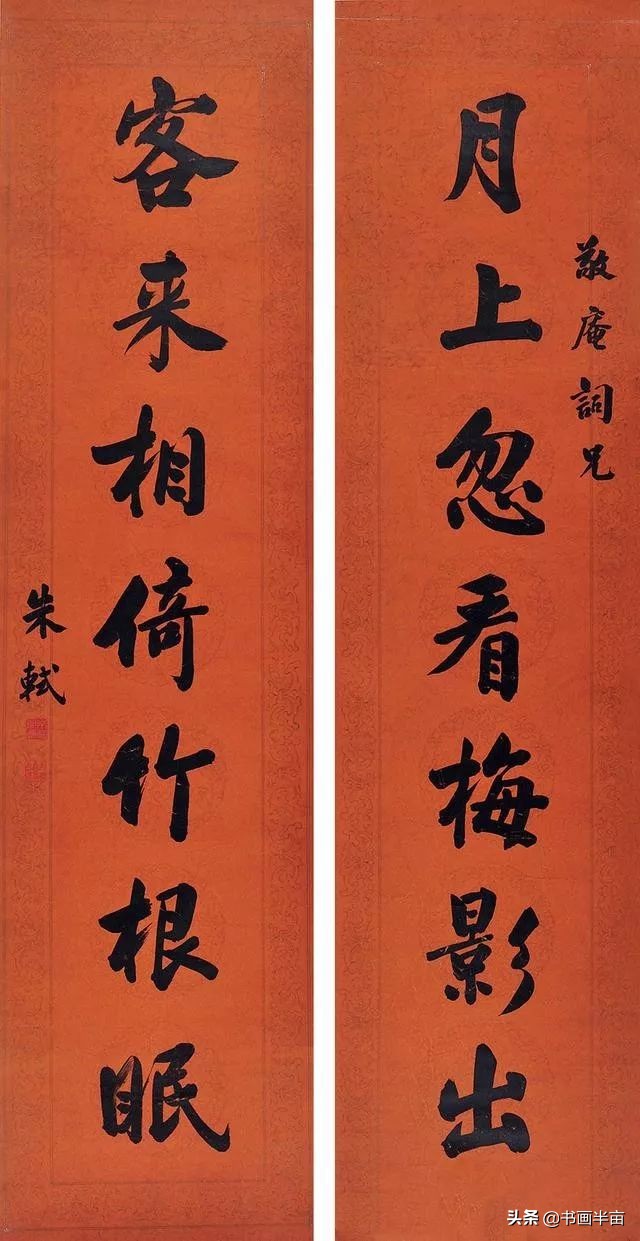 敬庵詞兄
月上忽看梅影出
客来相倚竹根眠
朱軾
头条 @书画半亩